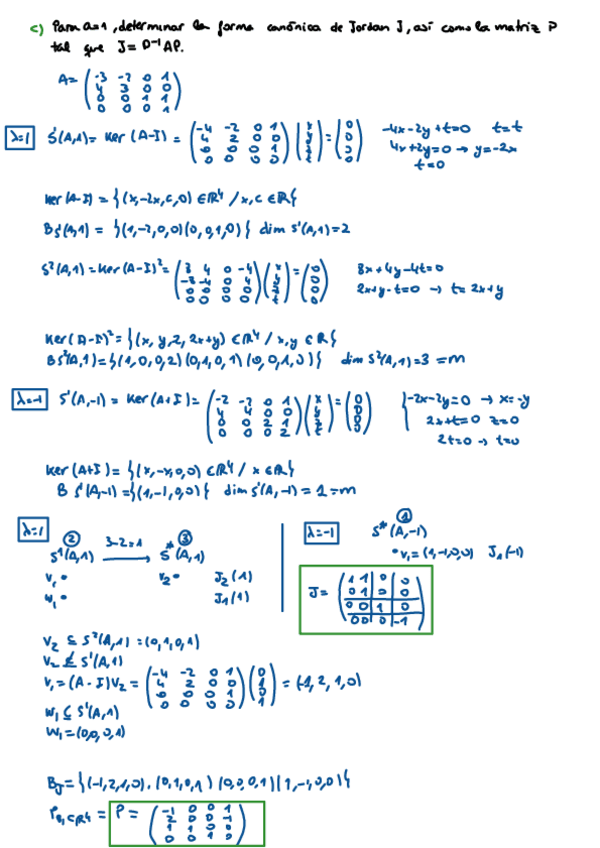 c) Para a=1, determinar la forma canónica de Jordan J, así como la matriz P
tal que J= P⁻¹AP.
A= ( -3 -2 0 1
4 3 0 0
0 0 1 1
0 0 0 1 )
λ=1 S¹(A,1)= Ker (A-I) = ( -4 -2 0 1 ; 4 2 0 0 ; 0 0 0 1 ; 0 0 0 0 ) ( x y z t ) = ( 0 0 0 0 ) -4x-2y+t=0 t=t
4x+2y=0 → y=-2x
t=0
Ker (A-I) = {(x,-2x,c,0) ∈ℝ⁴ / x,c ∈ℝ}
B S¹(A,1) = {(1,-2,0,0)(0,0,1,0)} dim S¹(A,1)=2
S²(A,1)=Ker(A-I)²= 8x+4y-4t=0
2x+y-t=0 → t=2x+y
Ker(A-I)²={(x, y, z, 2x+y) ∈ℝ⁴ / x,y ∈ℝ}
B S²(A,1)={(1,0,0,2)(0,1,0,1)(0,0,1,0)} dim S²(A,1)=3 =m
λ=-1 S¹(A,-1) = Ker(A+I)= ( -2 -2 0 1 ; 4 4 0 0 ; 0 0 2 1 ; 0 0 0 2 ) ( x y z t ) = ( 0 0 0 0 ) -2x-2y=0 → x=-y
2z+t=0 z=0
2t=0 → t=0
Ker (A+I)= {(x,-x,0,0) ∈ℝ⁴ / x ∈ℝ}
B S¹(A,-1) ={(1,-1,0,0)} dim S¹(A,-1) = 1 =m
λ=1 ② 3-2=1 ③ λ=-1 ①
S¹(A,1) → S*(A,1) S*(A,-1)
v₁• v₂• J₂(1) •v₁=(1,-1,0,0) J₁(-1)
w₁• J₁(1)
J= ( 1 1 0 0
0 1 0 0
0 0 1 0
0 0 0 -1 )
V₂ ⊆ S²(A,1) =(0,1,0,1)
V₂ ⊄ S¹(A,1)
V₁=(A-I)V₂ = ( -4 -2 0 1 ; 4 2 0 0 ; 0 0 0 1 ; 0 0 0 0 ) ( 0 1 0 1 ) = (-1,2,1,0)
W₁ ⊆ S¹(A,1)
W₁=(0,0,0,1)
B_J={(-1,2,1,0),(0,1,0,1)(0,0,0,1)(1,-1,0,0)}
P =